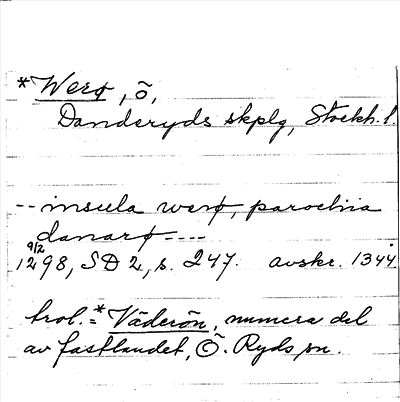 *Werø, ö,
Danderyds skplg, Stockh. l.
-- insula werø, parochia
danarø ---
9/2
1298, SD 2, s. 247. avskr. 1344
trol. = *Väderön, numera del
av fastlandet, Ö. Ryds sn.